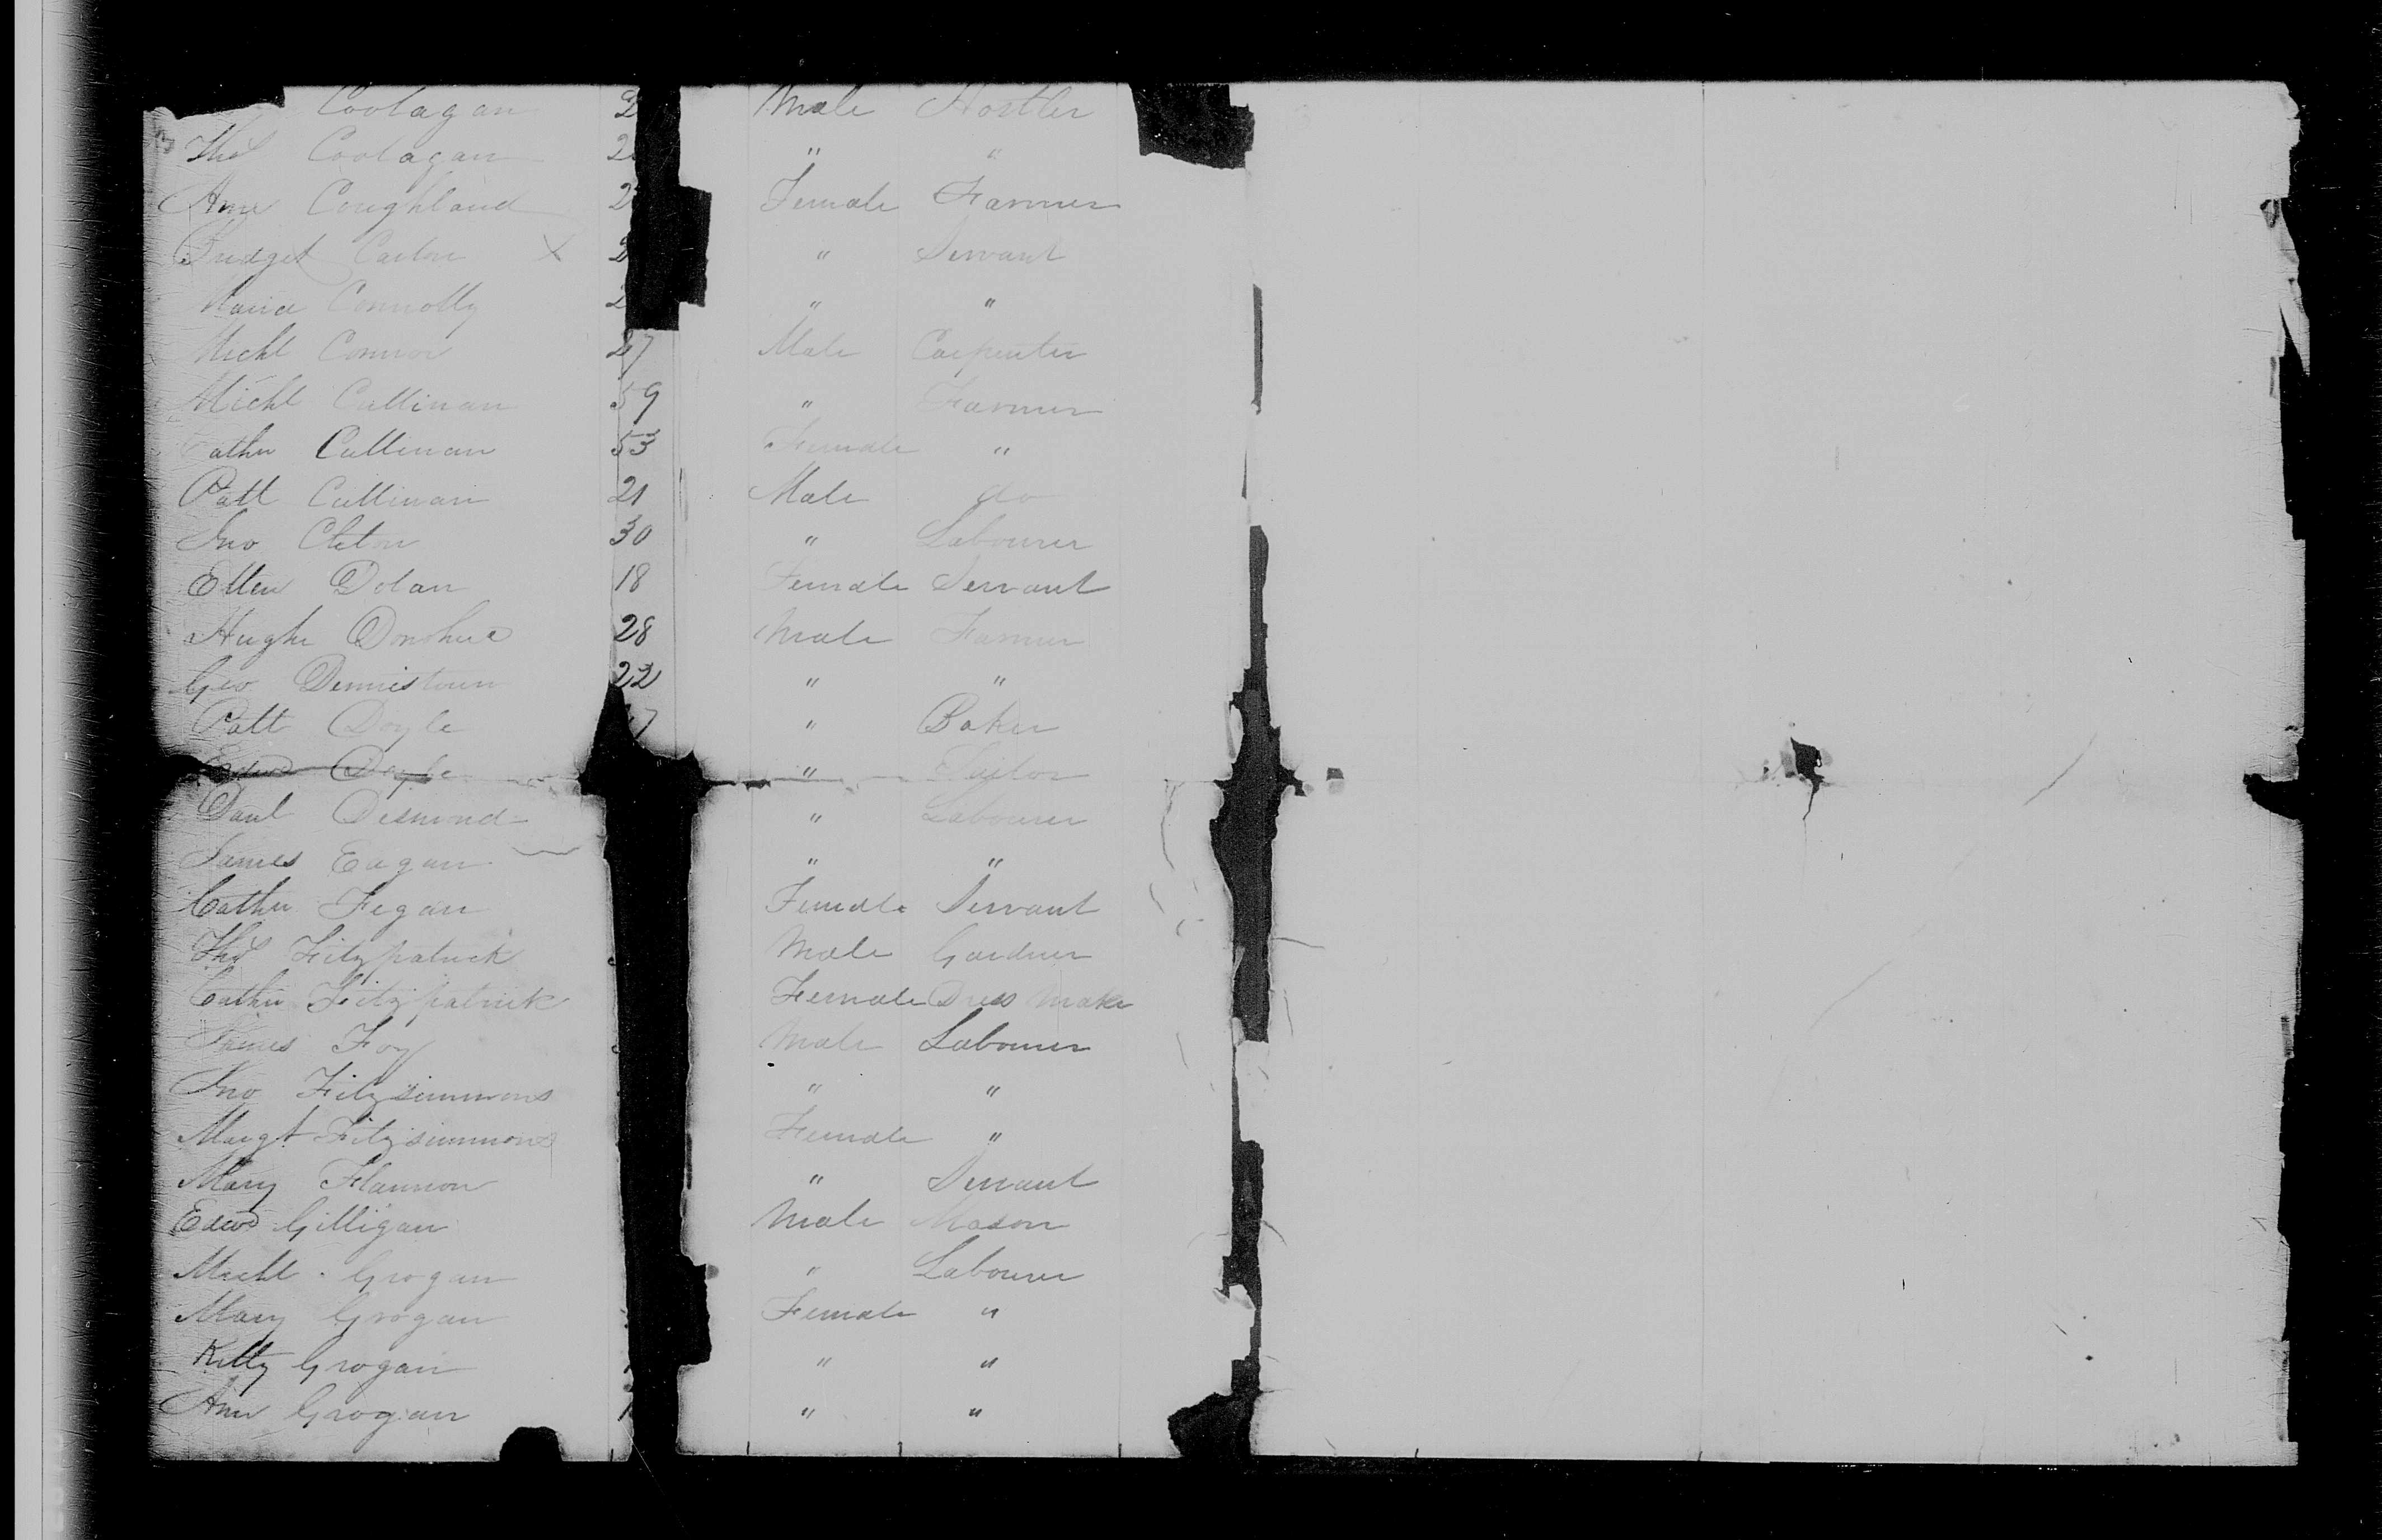 Coolagan 2 Male Hostler
Thos Coolagan 2 " "
Ann Coughland 2 Female Farmer
Bridget Carlon X 2 " Servant
Maria Connolly 2 " "
Michl Connor 27 Male Carpenter
Michl Cullinan 59 " Farmer
Cathn Cullinan 53 Female "
Patt Cullinan 21 Male do
Jno Cleton 30 " Labourer
Ellen Dolan 18 Female Servant
Hugh Donohue 28 Male Farmer
Geo Dennistown 22 " "
Patt Doyle 7 " Baker
Edwd Doyle " Tailor
Danl Desmond " Labourer
James Eagan " "
Cathn Fegan Female Servant
Thos Fitzpatrick Male Gardner
Cathn Fitzpatrick Female Dress Maker
James Foy Male Labourer
Jno Fitzsimmons " "
Margt Fitzsimmons Female "
Mary Flannon " Servant
Edwd Gilligan Male Mason
Michl Grogan " Labourer
Mary Grogan Female "
Kitty Grogan " "
Ann Grogan " "